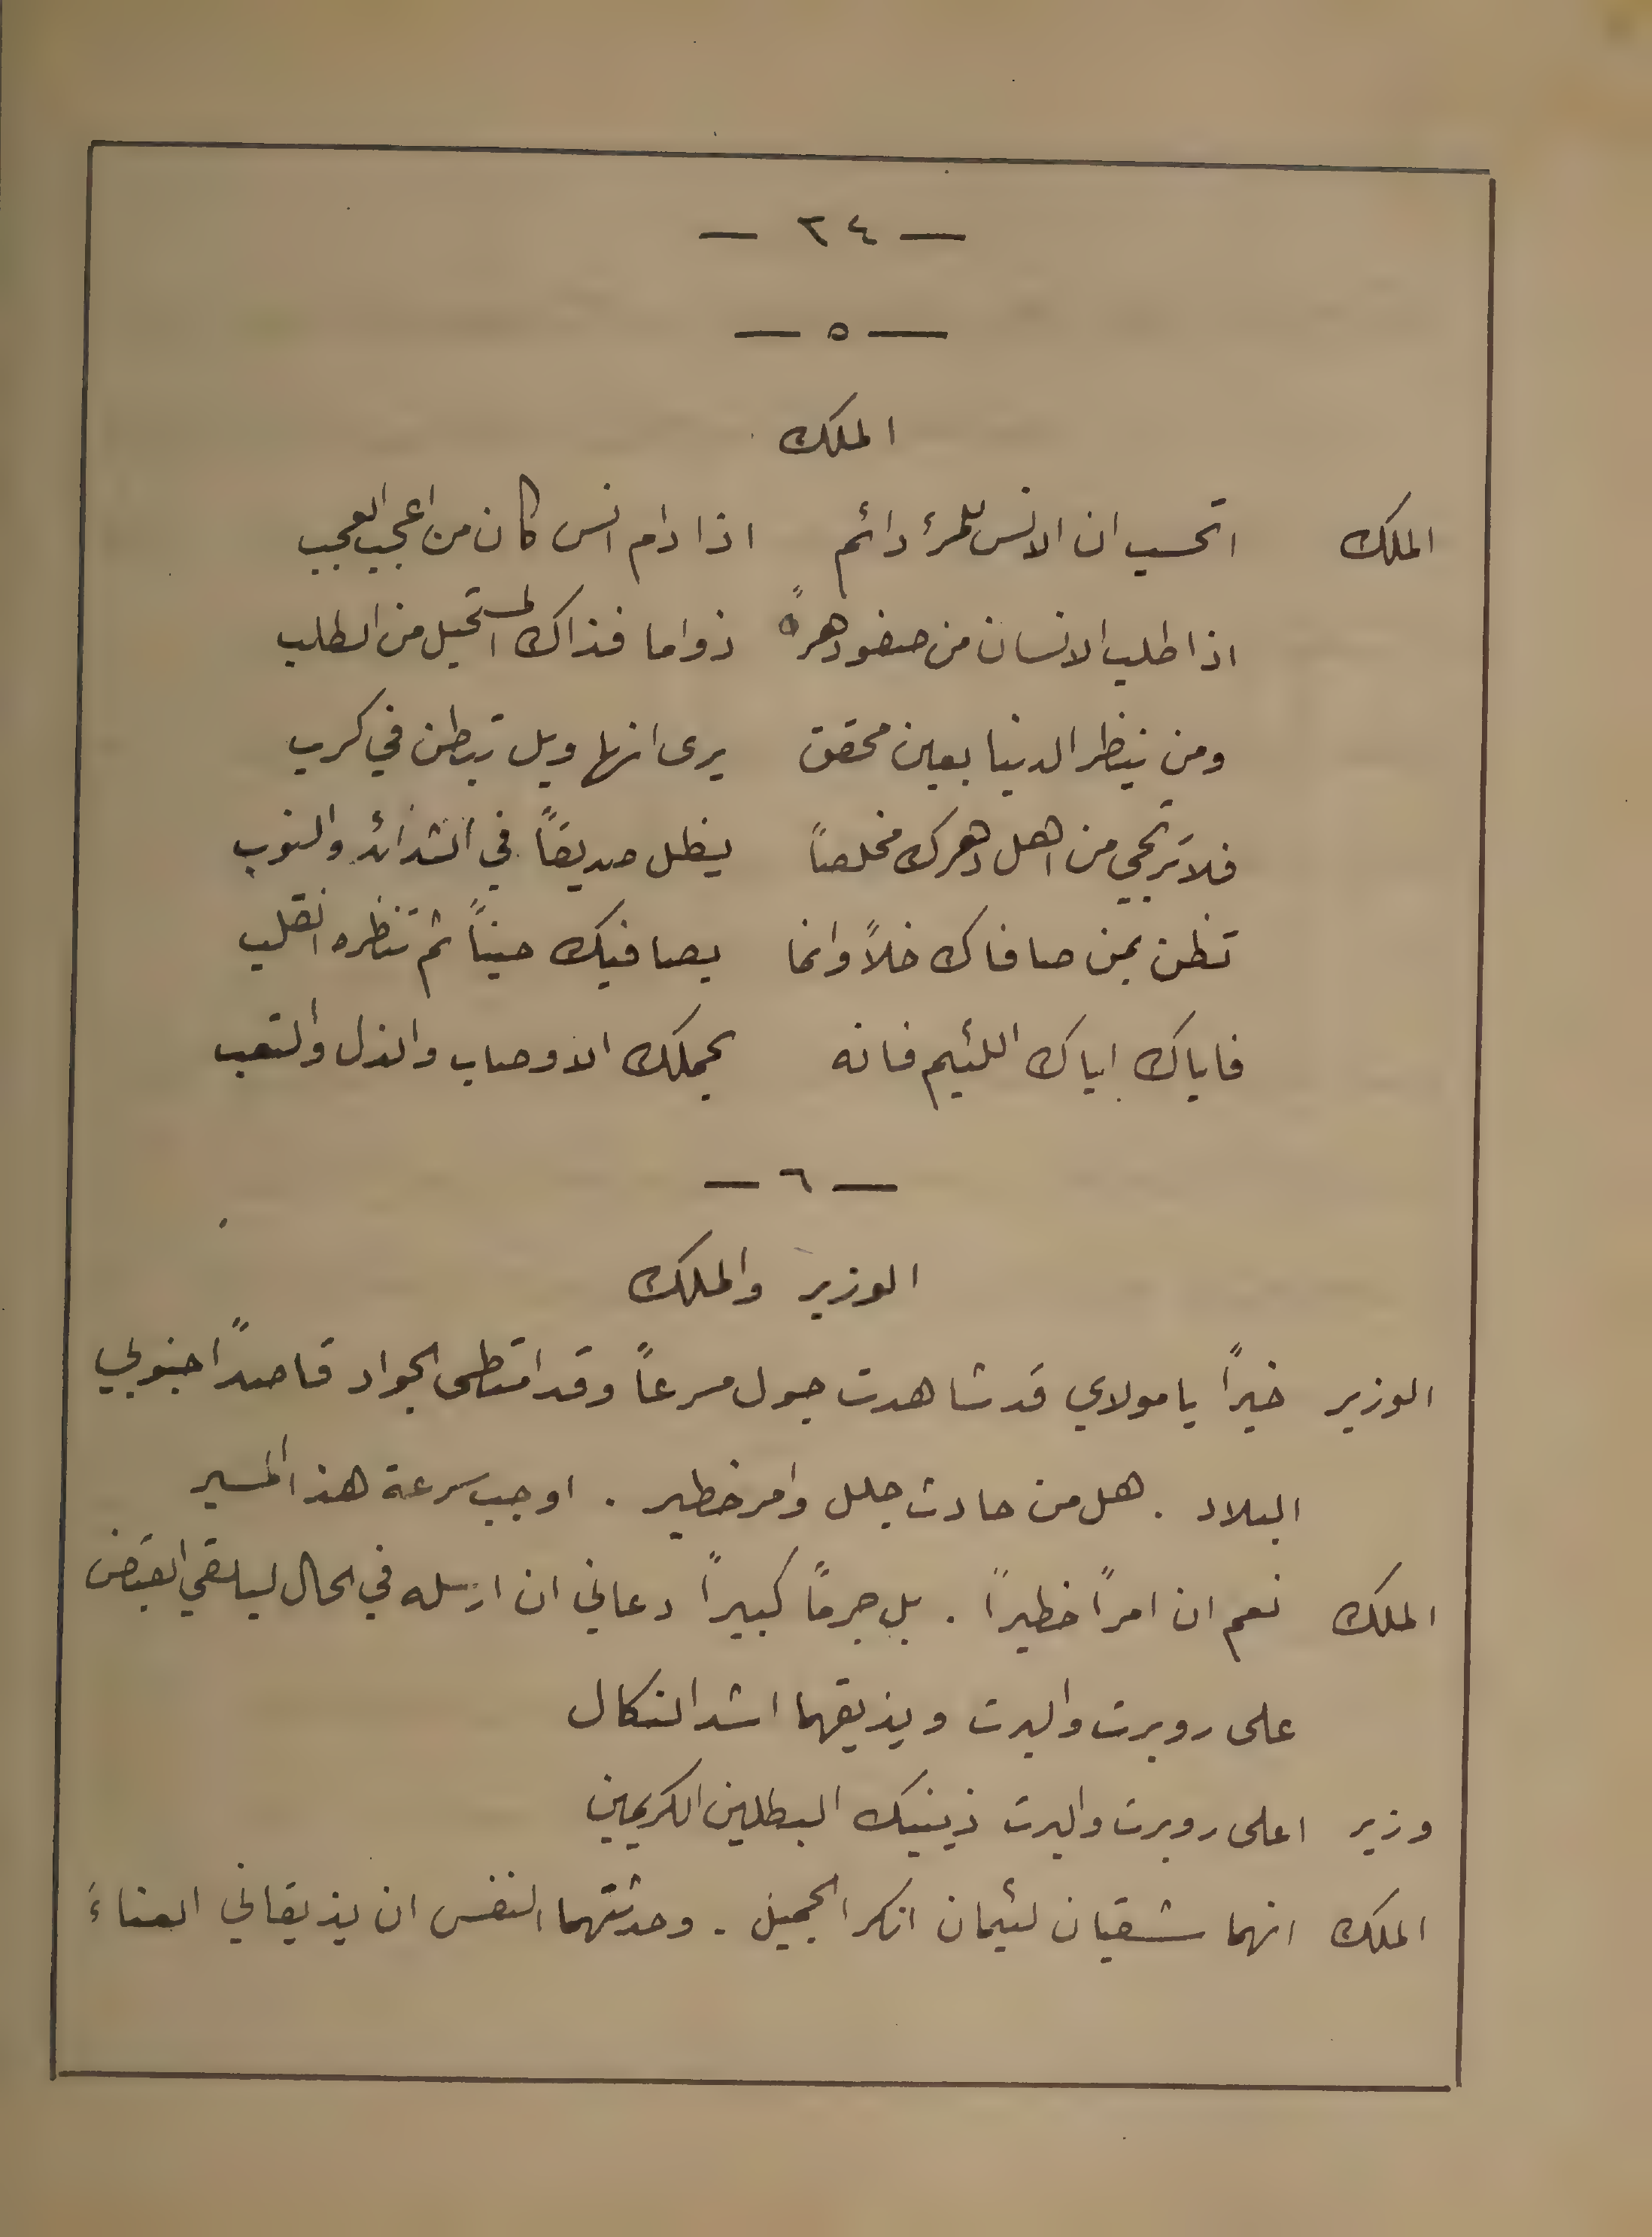 — ٢٤ —
— ٥ —
الملك
الملك اتحسب ان الانس للمرئ دائم اذا دام انس كان من اعجب العجب
اذا طلب الانسان من صفو دهره ذواما فذاك المستحيل من الطلب
ومن ينظر الدنيا بعين محقق يرى انها ويل تبطن في كرب
فلا ترتجي من اهل دهرك مخلصاً يظل صديقاً في الشدائد والنوب
تظن بمن صافاك خلاً وانما يصافيك حيناً ثم تنظره انقلب
فاياك اياك اللئيم فانه يحملك الاوصاب والذل والتعب
— ٦ —
الوزير والملك
الوزير خيراً يا مولاي قد شاهدت جول مسرعاً وقد امتطى الجواد قاصداً جنوبي
البلاد . هل من حادث جلل وامر خطير . اوجب سرعة هذا المسير
الملك نعم ان امراً خطيراً . بل جرماً كبيراً دعاني ان ارسله في الحال ليلقي القبض
على روبرت والبرت ويذيقهما اشد النكال
وزير اعلى روبرت والبرت ذينيك البطلين الكريمين
الملك انهما شقيان لئيمان انكرا الجميل . وحدثتهما النفس ان يذيقاني العناءَ